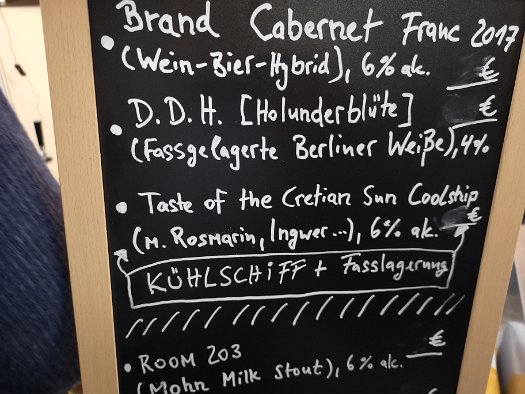 Brand Cabernet Franc 2017
• (Wein-Bier-Hybrid), 6% alc. €
D.D.H. [Holunderblüte] €
• (Fassgelagerte Berliner Weiße), 4%
• Taste of the Cretian Sun Coolship
(m. Rosmarin, Ingwer...), 6% alc. €
KÜHLSCHIFF + Fasslagerung
• ROOM 203 €
(Mohn Milk Stout), 6% alc.